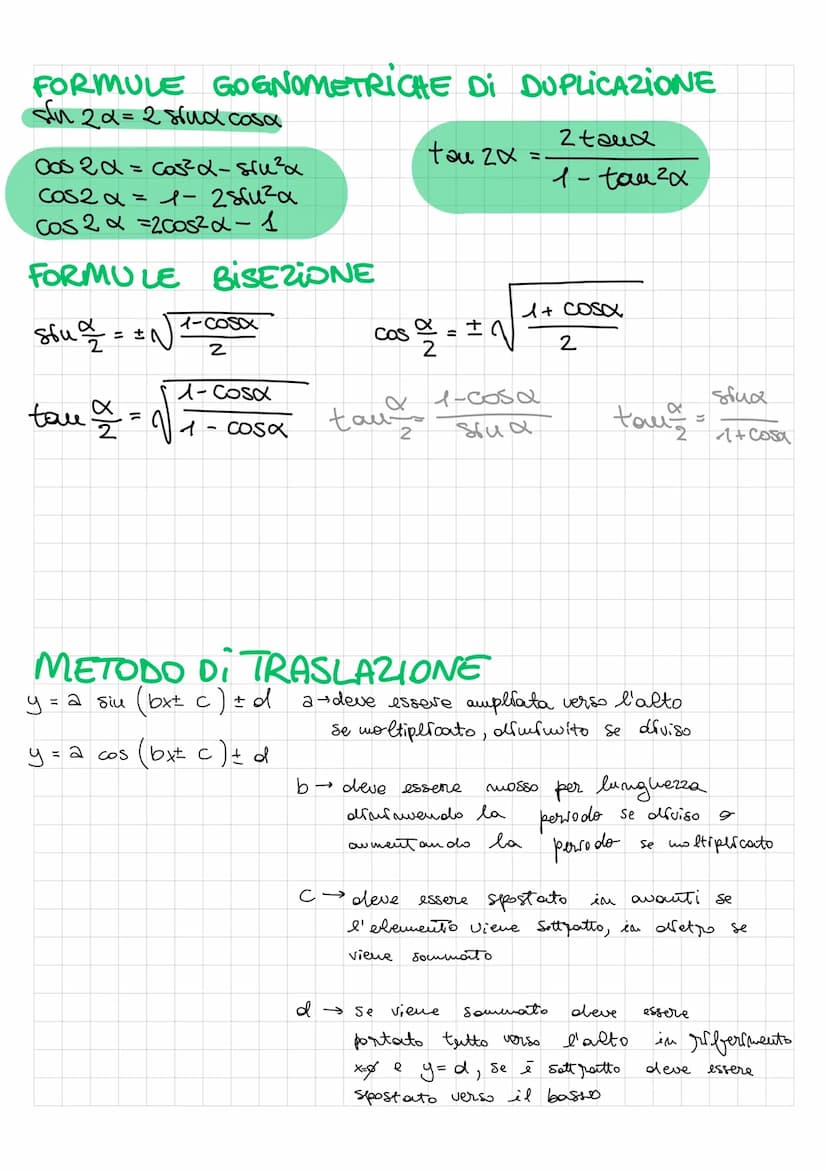 FORMULE GOGNOMETRICHE Di DUPLiCAZiONE
sin 2α = 2 sinα cosα
cos 2α = cos²α - sin²α
cos2α = 1 - 2sin²α
cos2α = 2cos²α - 1
tan 2α = 2 tanα / 1 - tan²α
FORMULE BiSEZiONE
sin α/2 = ±√(1-cosα / 2)
cos α/2 = ±√(1+ cosα / 2)
tan α/2 = √(1-cosα / 1 - cosα)
tan α/2 = 1-cosα / sinα
tan α/2 = sinα / 1+cosα
METODO Di TRASLAZIONE
y = a sin (bx± c) ± d
y = a cos (bx± c) ± d
a→deve essere ampliata verso l'alto
se moltiplicato, diminuito se diviso
b → deve essere mosso per lunghezza
diminuendo la periodo se diviso o
aumentando la periodo se moltiplicato
c → deve essere spostato in avanti se
l'elemento viene sottratto, in dietro se
viene sommato
d → se viene sommato deve essere
portato tutto verso l'alto in riferimento
x=0 e y = d, se è sottratto deve essere
spostato verso il basso